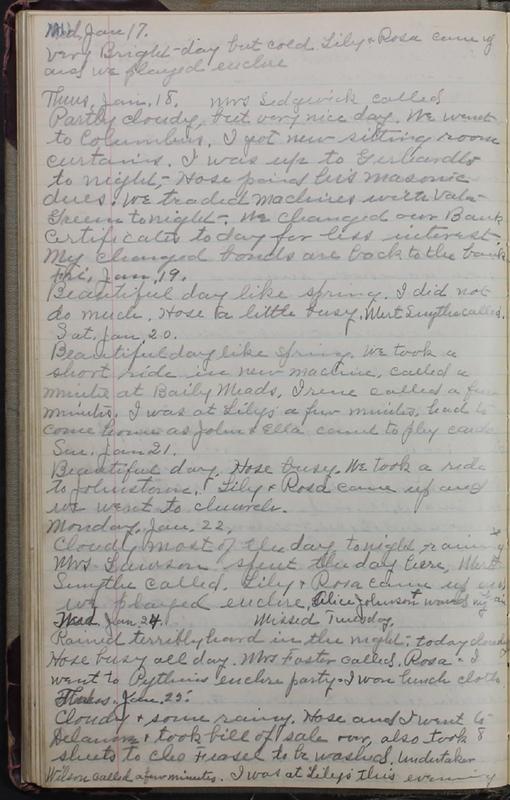 Wed, Jan 17.
Very Bright day but cold Lily & Rosa came up
and we played euchre
Thurs, Jan. 18. Mrs Sedgwick called
Partly cloudy, but very nice day. We went
to Columbus. I got new sitting room
curtains. I was up to Gerhardts
to night, - Hose paid his masonic
dues. We traded machines with Vala-
Green tonight -. We changed our Bank
Certificates today for less interest.
My changed bonds are back to the bank
Fri, Jan. 19.
Beautiful day like spring. I did not
do much. Hose a little busy. Mert Smythe called.
Sat. Jan. 20.
Beautiful day like spring. We took a
short ride in new machine, called a
minute at Baily Meads, Irene called a few
minutes. I was at Lilys a few minutes, had to
come home as John & Ella came to play cards
Sun. Jan 21.
Beautiful day. Hose busy. We took a ride
to Johnstown. Lily & Rosa came up and
we went to church.
Monday, Jan. 22.
Cloudy most of the day, tonight rainy
Mrs Lawson spent the day here, Mert
Smythe called. Lily & Rosa came up and
we played euchre, Alice Johnson waved my hair
Wed Jan 24. Missed Tuesday.
Rained terribly hard in the night - today cloudy
Hose busy all day. Mrs Foster called. Rosa & I
went to Pythias euchre party - I won lunch cloth
Thurs. Jan. 25.
Cloudy & some rainy. Hose and I went to
Delaware & took bill of sale over, also took 8
sheets to Cleo Feasel to be washed. Undertaker
Wilson called a few minutes. I was at Lilys this evening